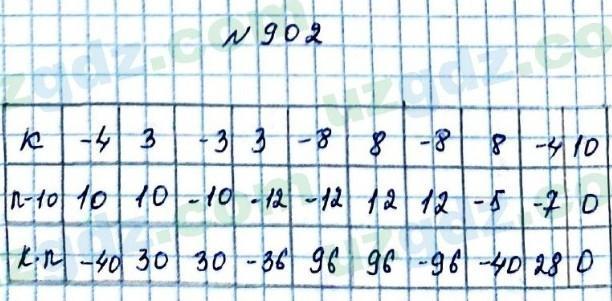 № 902
к -4 3 -3 3 -8 8 -8 8 -4 10
п-10 10 10 -10 -12 -12 12 12 -5 -7 0
к·п -40 30 30 -36 96 96 -96 -40 28 0
uzgdz.com